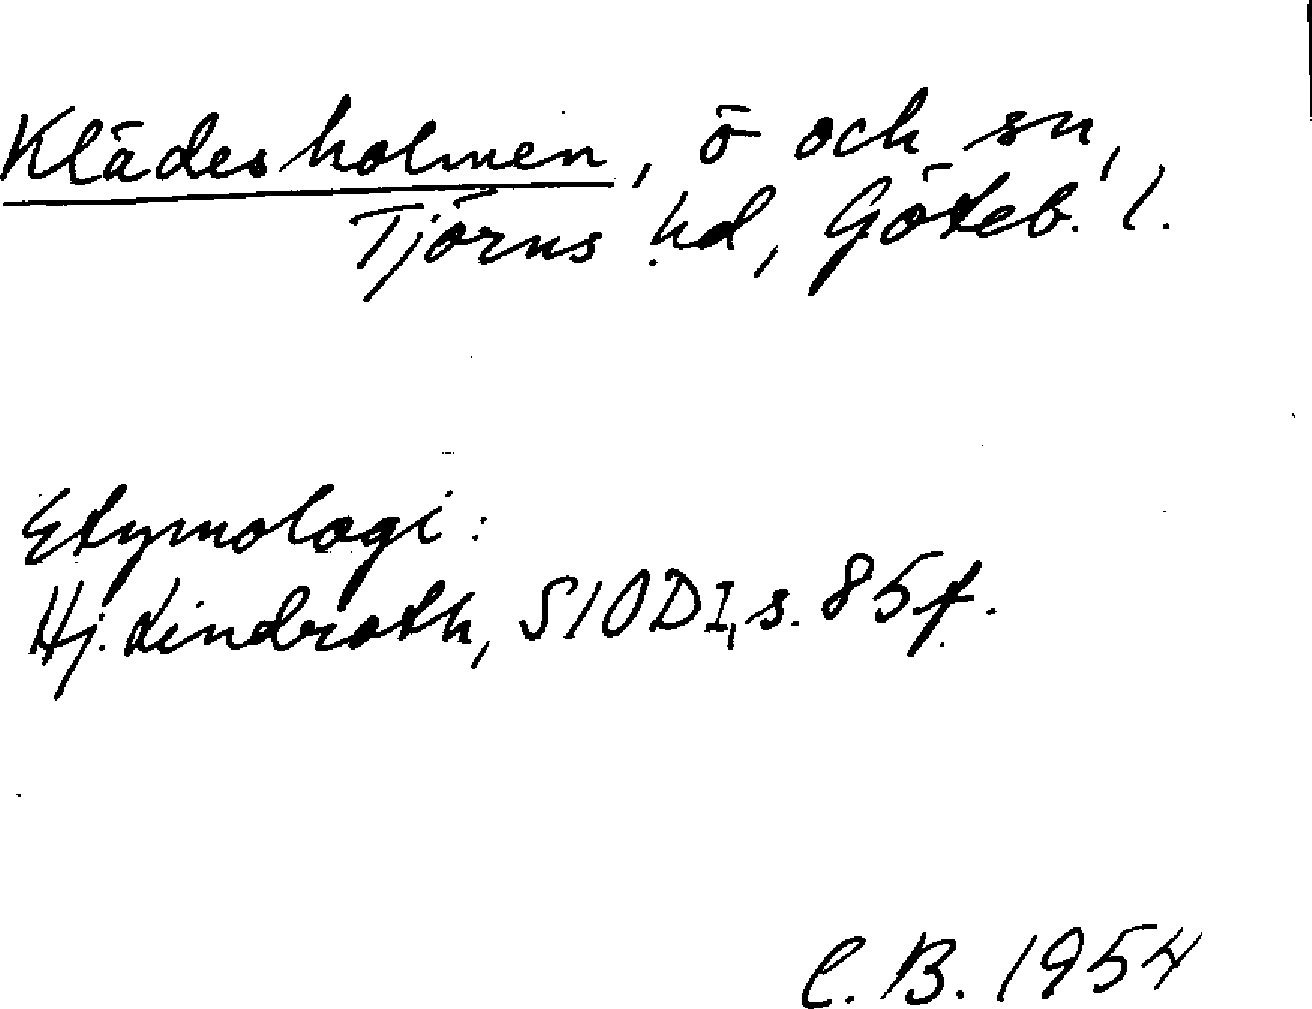 Klädesholmen, ö och sn,
Tjörns hd, Göteb. l.
Etymologi:
Hj. Lindroth, SIOD I, s. 85 f.
C. B. 1954